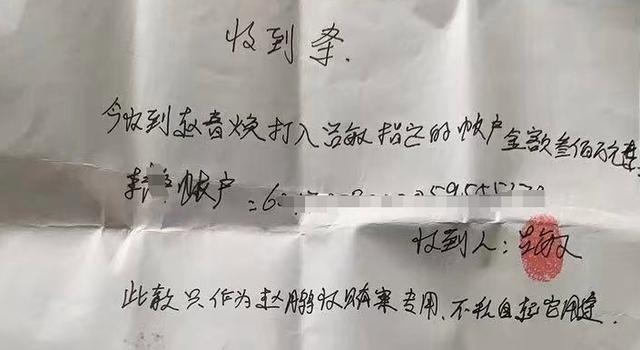 收到条.
今收到赵春焕打入吕敏指定的帐户金额叁佰万元整
帐户:6
收到人:吕敏
此款只作为赵鹏 案专用,不私自起它用途